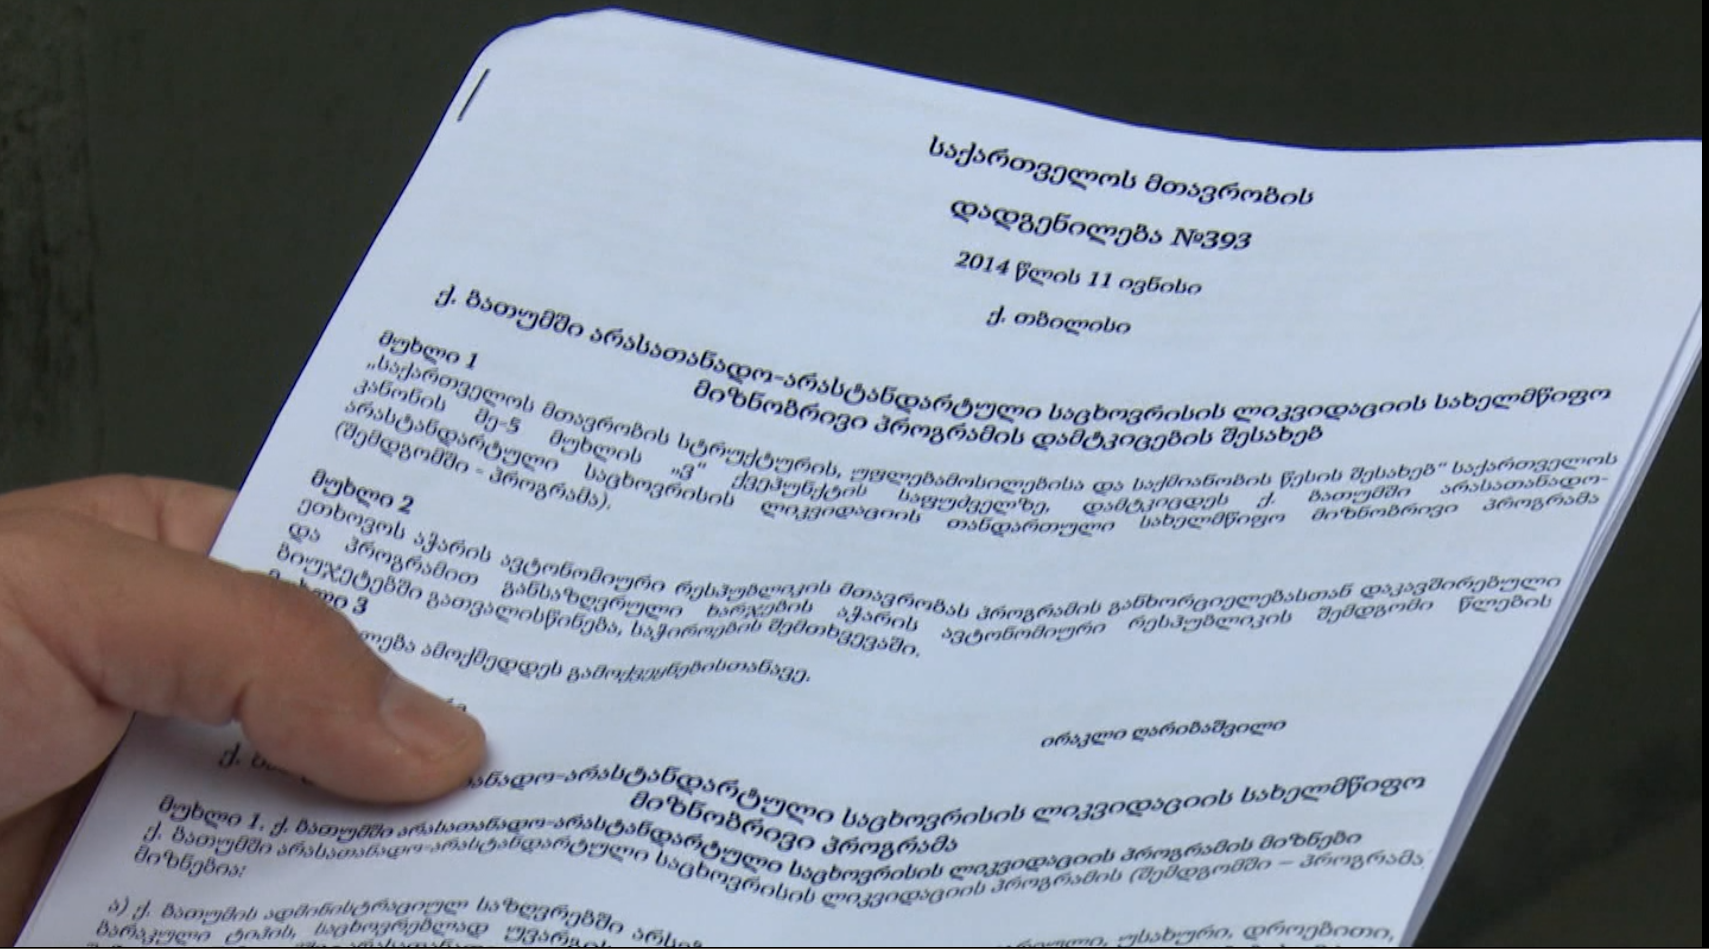 საქართველოს მთავრობის
დადგენილება №393
2014 წლის 11 ივნისი
ქ. თბილისი
ქ. ბათუმში არასათანადო-არასტანდარტული საცხოვრისის ლიკვიდაციის სახელმწიფო
მიზნობრივი პროგრამის დამტკიცების შესახებ
მუხლი 1
„საქართველოს მთავრობის სტრუქტურის, უფლებამოსილებისა და საქმიანობის წესის შესახებ“ საქართველოს
კანონის მე-5 მუხლის „ვ“ ქვეპუნქტის საფუძველზე, დამტკიცდეს ქ. ბათუმში არასათანადო-
არასტანდარტული საცხოვრისის ლიკვიდაციის თანდართული სახელმწიფო მიზნობრივი პროგრამა
(შემდგომში - პროგრამა).
მუხლი 2
ეთხოვოს აჭარის ავტონომიური რესპუბლიკის მთავრობას პროგრამის განხორციელებასთან დაკავშირებული
და პროგრამით განსაზღვრული ხარჯების აჭარის ავტონომიური რესპუბლიკის შემდგომი წლების
ბიუჯეტებში გათვალისწინება, საჭიროების შემთხვევაში.
3
ამოქმედდეს გამოქვეყნებისთანავე.
ირაკლი ღარიბაშვილი
ქ. არასტანდარტული საცხოვრისის ლიკვიდაციის სახელმწიფო
მიზნობრივი პროგრამა
მუხლი 1. ქ. ბათუმში არასათანადო-არასტანდარტული საცხოვრისის ლიკვიდაციის პროგრამის მიზნები
ქ. ბათუმში არასათანადო-არასტანდარტული საცხოვრისის ლიკვიდაციის პროგრამის (შემდგომში – პროგრამა
მიზნებია:
ა) ქ. ბათუმის ადმინისტრაციულ საზღვრებში უსახური, დროებითი,
ბარაკული ტიპის, საცხოვრებლად